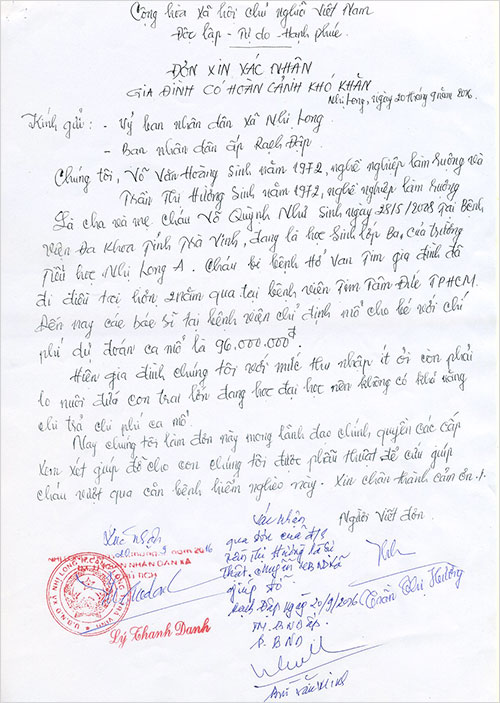 Cộng hòa xã hội chủ nghĩa Việt Nam
Độc lập - Tự do - Hạnh phúc
ĐƠN XIN XÁC NHẬN
GIA ĐÌNH CÓ HOÀN CẢNH KHÓ KHĂN
Nhị Long, ngày 20 tháng 9 năm 2016
Kính gửi: - Uỷ ban nhân dân xã Nhị Long
- Ban nhân dân ấp Rạch Đập
Chúng tôi, Võ Văn Hoàng sinh năm 1972, nghề nghiệp làm ruộng và
Trần Thị Hường sinh năm 1972, nghề nghiệp làm ruộng
Là cha và mẹ cháu Võ Quỳnh Như sinh ngày 28/5/2008 tại Bệnh
viện Đa Khoa Tỉnh Trà Vinh, đang là học sinh lớp Ba, của trường
Tiểu học Nhị Long A. Cháu bị bệnh Hở Van Tim gia đình đã
đi điều trị hơn 2 năm qua tại bệnh viện Tim Tâm Đức TPHCM.
Đến nay các bác sĩ tại bệnh viện chỉ định mổ cho bé với chi
phí dự đoán ca mổ là 96.000.000đ
Hiện gia đình chúng tôi với mức thu nhập ít ỏi còn phải
lo nuôi đứa con trai lớn đang học đại học nên không có khả năng
chi trả chi phí ca mổ.
Nay chúng tôi làm đơn này mong lãnh đạo chính quyền các cấp
xem xét giúp đỡ cho con chúng tôi được phẫu thuật để cứu giúp
cháu vượt qua căn bệnh hiểm nghèo này. Xin chân thành cảm ơn./.
Người viết đơn
Trần Thị Hường
Xác nhận
qua đơn của
Trần Thị Hường là sự
thật. chuyển UBND Xã
giúp đỡ
Rạch Đập ngày 20/9/2016
TM. BND ấp
T. BND
Xác nhận
9 năm 2016
NHÂN DÂN XÃ
TỊCH
Lý Thanh Danh